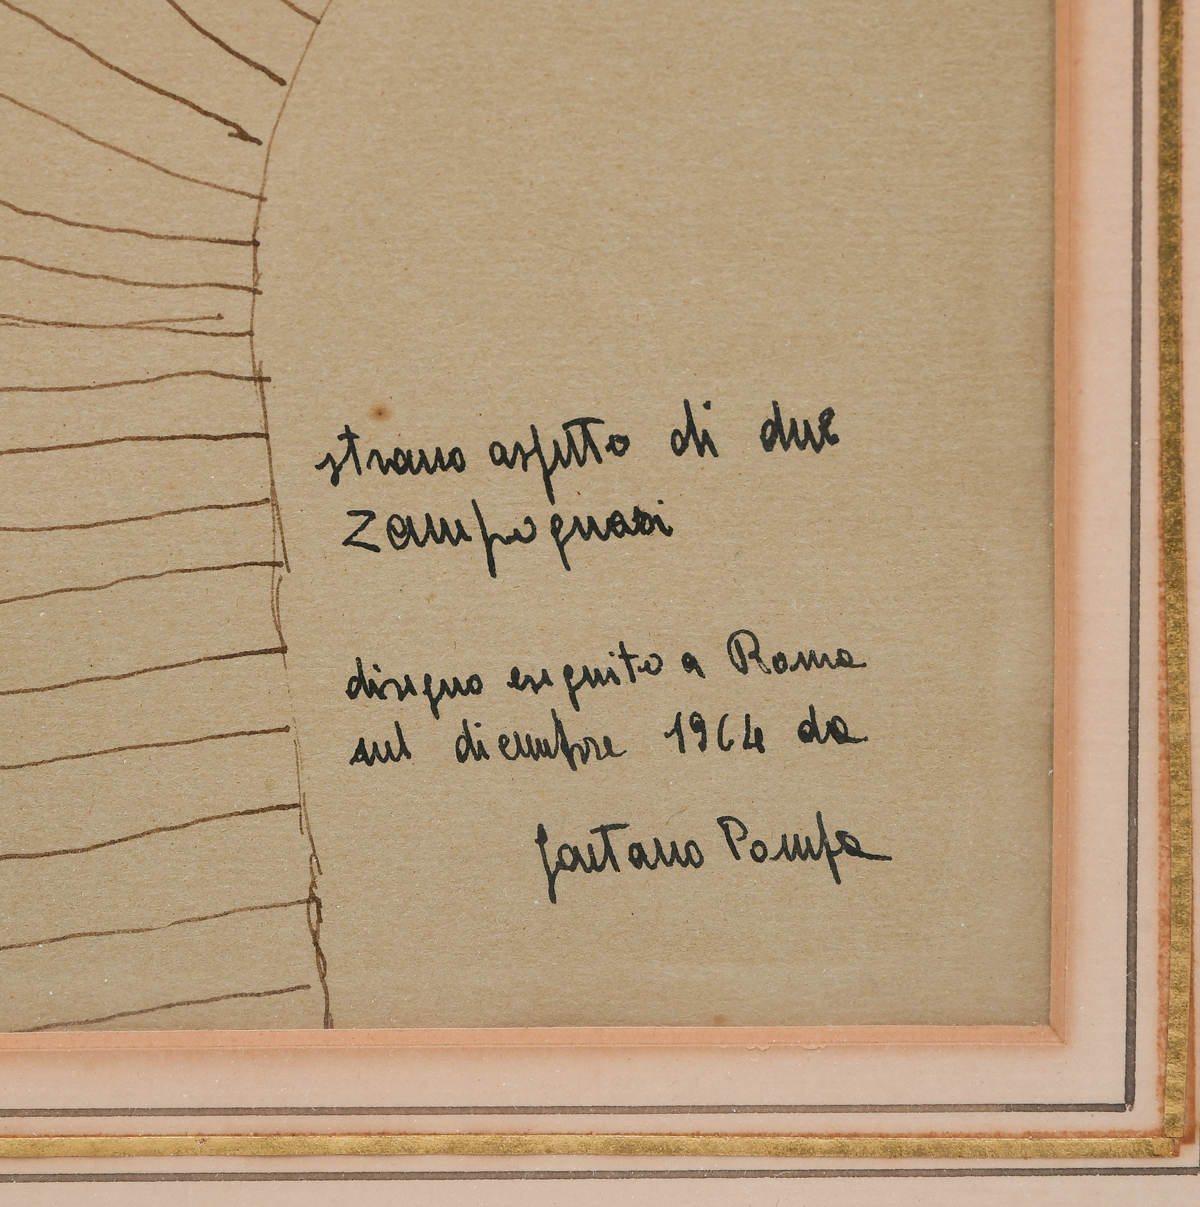 strano aspetto di due
zampognari
disegno eseguito a Roma
nel dicembre 1964 da
Gaetano Pompa